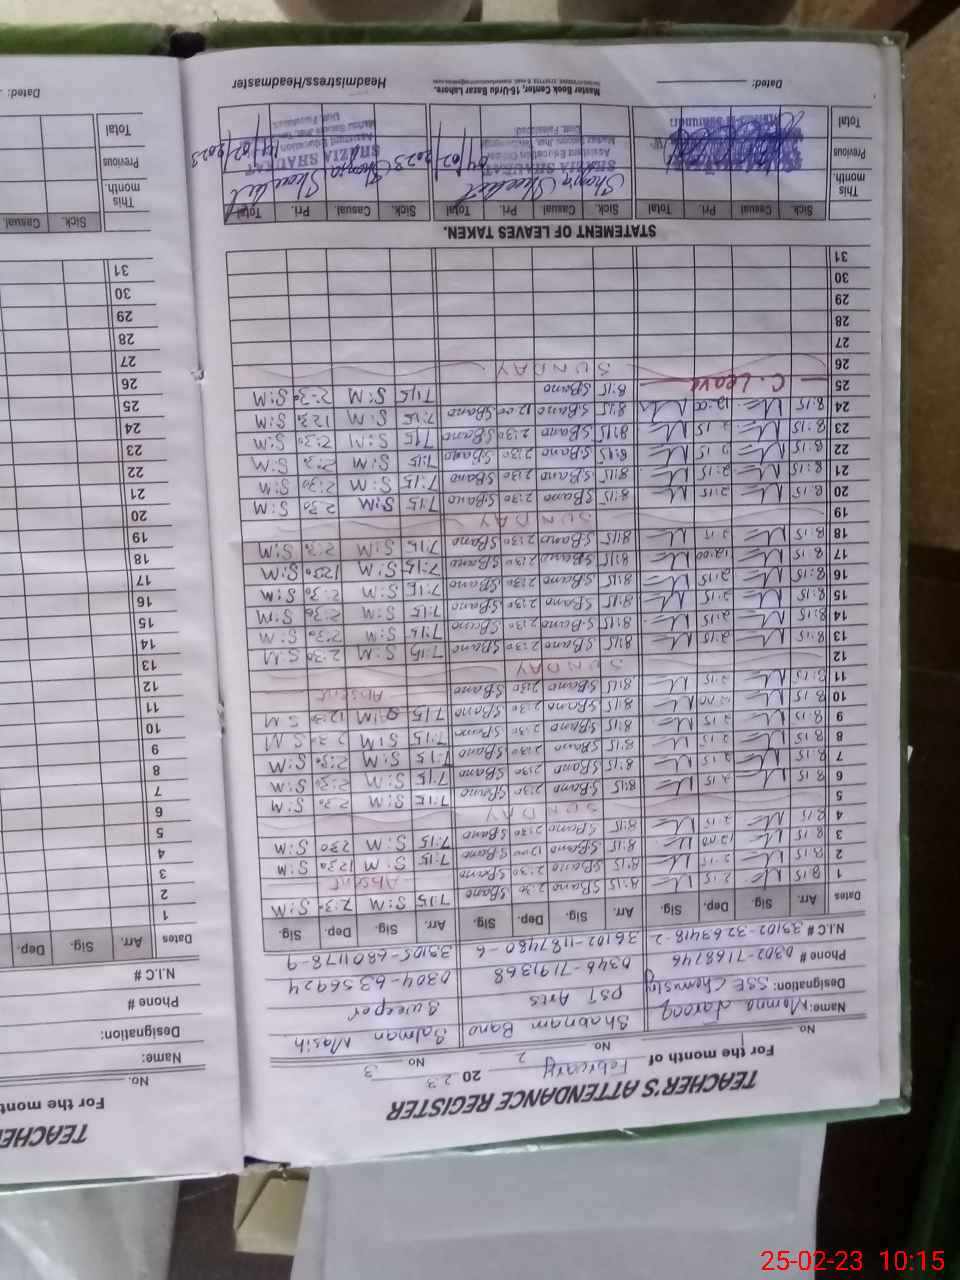 TEACHER'S ATTENDANCE REGISTER
For the month of February 2023
No. 1 No. 2 No. 3
Name: Momna Farooq Shabnam Bano Salman Masih
Designation: SSE Chemistry PST Arts Sweeper
Phone # 0302-7168746 0346-7191368 0304-6356924
N.I.C # 33102-3263418-2 36102-1187480-6 33105-6801178-9
Dates Arr. Sig. Dep. Sig. Arr. Sig. Dep. Sig. Arr. Sig. Dep. Sig.
1 8:15 2:15 8:15 S.Bano 2:30 S.Bano 7:15 S:M 2:30 S:M
2 8:15 2:15 8:15 S.Bano 2:30 S.Bano Absent
3 8:15 12:00 8:15 S.Bano 12:00 S.Bano 7:15 S:M 12:30 S:M
4 8:15 2:15 8:15 S.Bano 2:30 S.Bano 7:15 S:M 2:30 S:M
5 SUNDAY
6 8:15 2:15 8:15 S.Bano 2:30 S.Bano 7:15 S:M 2:30 S:M
7 8:15 2:15 8:15 S.Bano 2:30 S.Bano 7:15 S:M 2:30 S:M
8 8:15 2:15 8:15 S.Bano 2:30 S.Bano 7:15 S:M 2:30 S:M
9 8:15 2:15 8:15 S.Bano 2:30 S.Bano 7:15 S:M 2:30 S:M
10 8:15 12:00 8:15 S.Bano 2:30 S.Bano 7:15 S:M 12:30 S:M
11 8:15 2:15 8:15 S.Bano 2:30 S.Bano Absent
12 SUNDAY
13 8:15 2:15 8:15 S.Bano 2:30 S.Bano 7:15 S:M 2:30 S:M
14 8:15 2:15 8:15 S.Bano 2:30 S.Bano 7:15 S:M 2:30 S:M
15 8:15 2:15 8:15 S.Bano 2:30 S.Bano 7:15 S:M 2:30 S:M
16 8:15 2:15 8:15 S.Bano 2:30 S.Bano 7:15 S:M 2:30 S:M
17 8:15 12:00 8:15 S.Bano 2:30 S.Bano 7:15 S:M 12:30 S:M
18 8:15 2:15 8:15 S.Bano 2:30 S.Bano 7:15 S:M 2:30 S:M
19 SUNDAY
20 8:15 2:15 8:15 S.Bano 2:30 S.Bano 7:15 S:M 2:30 S:M
21 8:15 2:15 8:15 S.Bano 2:30 S.Bano 7:15 S:M 2:30 S:M
22 8:15 2:15 8:15 S.Bano 2:30 S.Bano 7:15 S:M 2:30 S:M
23 8:15 2:15 8:15 S.Bano 2:30 S.Bano 7:15 S:M 2:30 S:M
24 8:15 12:00 8:15 S.Bano 12:00 S.Bano 7:15 S:M 12:30 S:M
25 C. Leave 8:15 S.Bano 7:15 S:M 2:30 S:M
26 SUNDAY
27
28
29
30
31
STATEMENT OF LEAVES TAKEN.
Sick. Casual Pri. Total Sick. Casual Pri. Total Sick. Casual Pri. Total
This month
Previous
Total
Shazia Shaukat
SHAZIA SHAUKAT
Assistant Education Officer
04/02/2023
Shazia Shaukat
SHAZIA SHAUKAT
Assistant Education
14/02/2023
Dated:
Master Book Center, 16-Urdu Bazar Lahore.
Headmistress/Headmaster
TEACHE
For the mont
No.
Name:
Designation:
Phone #
N.I.C #
Dates Arr. Sig. Dep.
1
2
3
4
5
6
7
8
9
10
11
12
13
14
15
16
17
18
19
20
21
22
23
24
25
26
27
28
29
30
31
Sick. Casual
This month
Previous
Total
Dated:
25-02-23 10:15